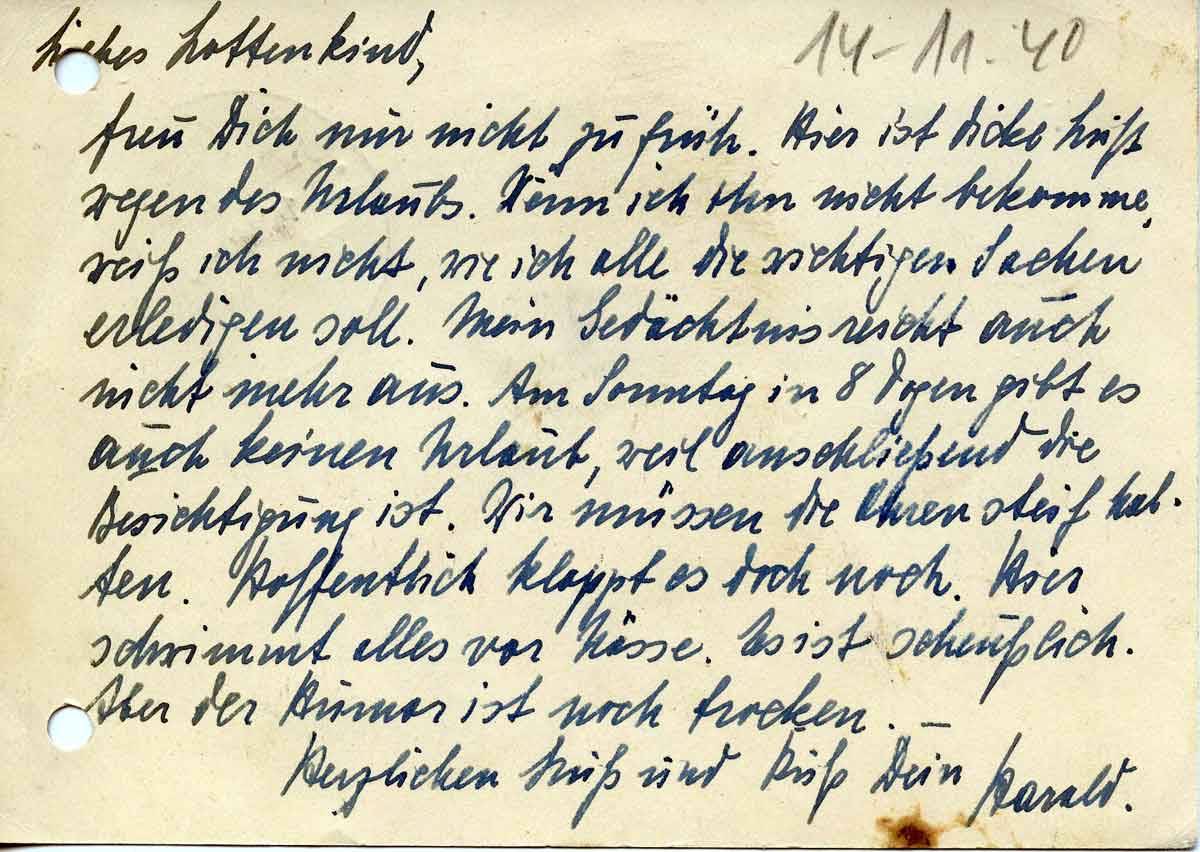 Liebes Lottenkind,
14-11.40
freu Dich nur nicht zu früh. Hier ist dicke Luft
wegen des Urlaubs. Wenn ich ihn nicht bekomme,
weiß ich nicht, wie ich alle die wichtigen Sachen
erledigen soll. Mein Gedächtnis reicht auch
nicht mehr aus. Am Sonntag in 8 Tagen gibt es
auch keinen Urlaub, weil anschließend die
Besichtigung ist. Wir müssen die Ohren steif hal-
ten. Hoffentlich klappt es doch noch. Hier
schwimmt alles vor Nässe. Es ist scheußlich.
Aber der Humor ist noch trocken. –
Herzlichen Gruß und Kuß Dein Harald.